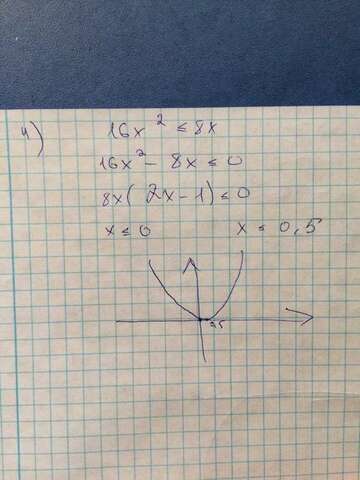 4)
16x² ≤ 8x
16x² - 8x ≤ 0
8x(2x-1) ≤ 0
x ≤ 0 x ≤ 0,5
0,5